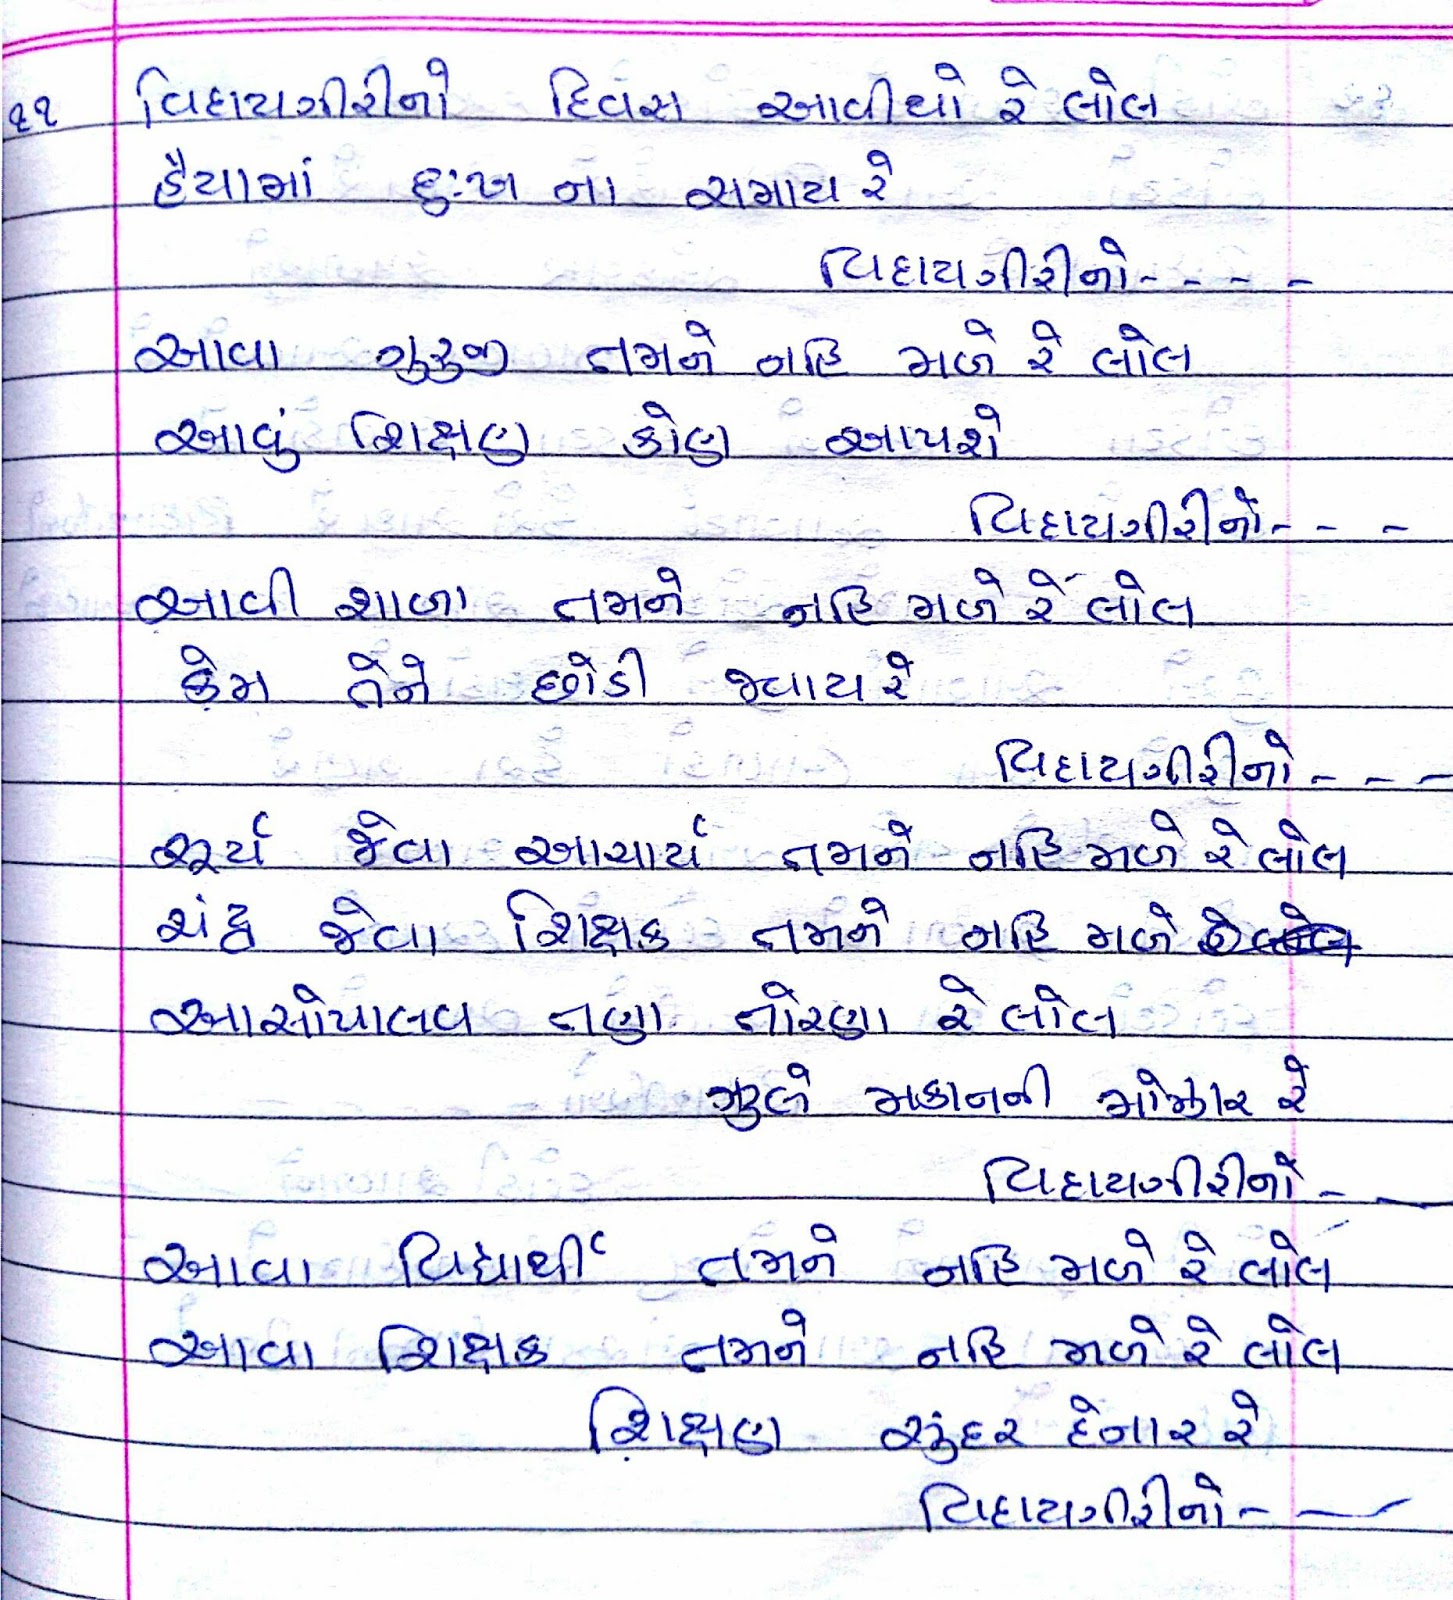 ૬૧ વિદાયગીરીનો દિવસ આવીયો રે લોલ
હૈયામાં દુઃખ ના સમાય રે
વિદાયગીરીનો - - - -
આવા ગુરુજી તમને નહિ મળે રે લોલ
આવું શિક્ષણ કોણ આપશે
વિદાયગીરીનો - - -
આવી શાળા તમને નહિ મળે રે લોલ
કેમ તેને છોડી જવાય રે
વિદાયગીરીનો - - -
સૂર્ય જેવા આચાર્ય તમને નહિ મળે રે લોલ
ચંદ્ર જેવા શિક્ષક તમને નહિ મળે
આસોપાલવ તણા તોરણા રે લોલ
ઝુલે મકાનની મોઝાર રે
વિદાયગીરીનો - -
આવા વિદ્યાર્થી તમને નહિ મળે રે લોલ
આવા શિક્ષક તમને નહિ મળે રે લોલ
શિક્ષણ સુંદર દેનાર રે
વિદાયગીરીનો - -